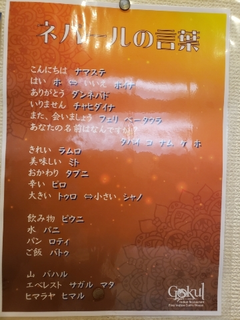 ネパールの言葉
こんにちは ナマステ
はい ホ ⇔ いいえ ホイナ
ありがとう ダンネバド
いりません チャヒダイナ
また、会いましょう フェリ ベータウラ
あなたの名前はなんですか?
タパイ コ ナム ケ ホ
きれい ラムロ
美味しい ミト
おかわり タプニ
辛い ピロ
大きい トゥロ ⇔ 小さい シャノ
飲み物 ピウニ
水 パニ
パン ロティ
ご飯 バトゥ
山 パハル
エベレスト サガル マタ
ヒマラヤ ヒマル
Gokul